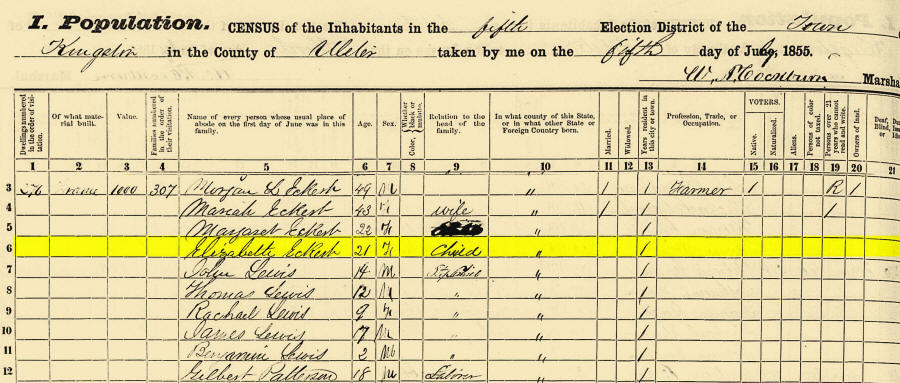 I. Population. CENSUS of the Inhabitants in the fifth Election District of the Town
Kingston in the County of Ulster taken by me on the fifth day of July, 1855.
Marsha
Dwellings numbered in the order of visitation. Of what material built. Value. Families numbered in the order of their visitation. Name of every person whose usual place of abode on the first day of June was in this family. Age. Sex. Color, Whether black or mulatto. Relation to the head of the family. In what county of this State, or in what other State or Foreign Country born. Married. Widowed. Years resident in this city or town. Profession, Trade, or Occupation. VOTERS. Native. Naturalized. Aliens. Persons of color not taxed. Persons over 21 years who cannot read and write. Owners of land. Deaf, Blind, or
1 2 3 4 5 6 7 8 9 10 11 12 13 14 15 16 17 18 19 20 21
3 276 Frame 1000 307 Morgan L Eckert 49 M " 1 1 Farmer 1 R 1
4 Mariah Eckert 43 F wife " 1 1 1
5 Margaret Eckert 22 F " 1
6 Elizabeth Eckert 21 F Child " 1
7 John Lewis 14 M " 1
8 Thomas Lewis 12 M " " 1
9 Rachael Lewis 9 F " " 1
10 James Lewis 7 M " " 1
11 Benjamin Lewis 2 M " " 1
12 Gilbert Patterson 18 M Laborer " 1